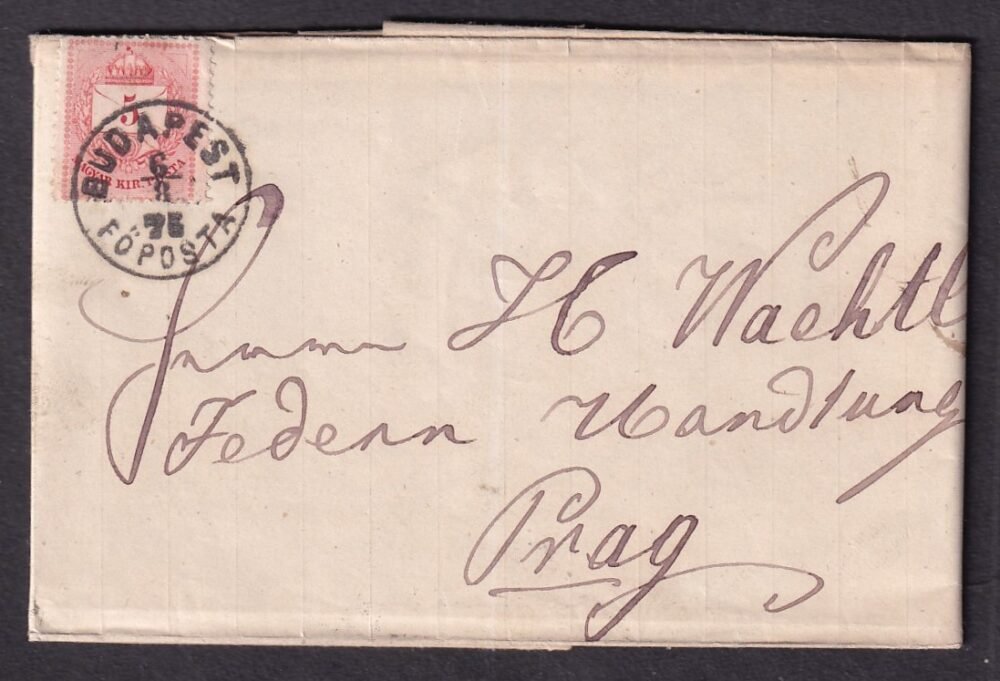 5
MAGYAR KIR. POSTA
BUDAPEST
6
8
75
FŐPOSTA
Herrn H Wachtl
Federn Handlung
Prag